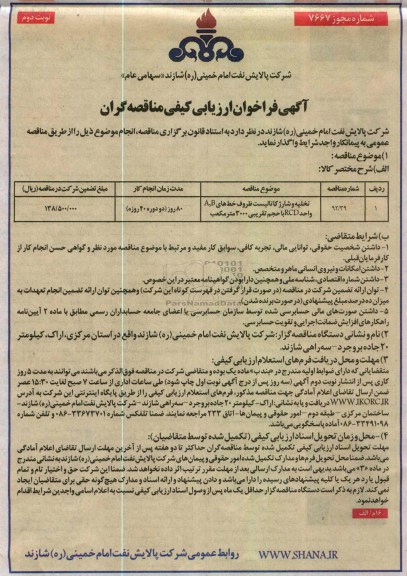 شماره مجوز ۷۶۶۷
نوبت دوم
شرکت پالایش نفت امام خمینی (ره) شازند «سهامی عام»
آگهی فراخوان ارزیابی کیفی مناقصه گران
شرکت پالایش نفت امام خمینی (ره) شازند در نظر دارد به استناد قانون برگزاری مناقصه، انجام موضوع ذیل را از طریق مناقصه
عمومی به پیمانکار واجد شرایط واگذار نماید.
۱) موضوع مناقصه:
الف) شرح مختصر کالا:
ردیف شماره مناقصه موضوع مناقصه مدت زمان انجام کار مبلغ تضمین شرکت در مناقصه (ریال)
۱ ۹۲/۲۹ تخلیه و شارژ کاتالیست ظروف خط های A,B
واحد RCD با حجم تقریبی ۳۰۰۰ متر مکعب ۸۰ روز (دو دوره ۴۰ روزه) ۱۳۸/۵۰۰/۰۰۰
ب) شرایط متقاضی:
۱- داشتن شخصیت حقوقی، توانایی مالی، تجربه کافی، سوابق کار مفید و مرتبط با موضوع مناقصه مورد نظر و گواهی حسن انجام کار از
کارفرمایان قبلی.
۲- داشتن امکانات و نیروی انسانی ماهر و متخصص.
۳- داشتن شماره اقتصادی، شناسه ملی و همچنین دارا بودن گواهینامه معتبر در این خصوص.
۴- توان ارائه تضمین شرکت در مناقصه (در صورت قرار گرفتن در فهرست کوتاه این شرکت) و همچنین توان ارائه تضمین انجام تعهدات به
میزان ده درصد مبلغ پیشنهادی (در صورت برنده شدن)
۵- داشتن صورت های مالی حسابرسی شده توسط سازمان حسابرسی یا اعضای جامعه حسابداران رسمی مطابق با ماده ۲ آیین نامه
راهکارهای افزایش ضمانت اجرایی و تقویت حسابرسی.
۲) نام و نشانی دستگاه مناقصه گزار: شرکت پالایش نفت امام خمینی (ره) شازند واقع در استان مرکزی، اراک، کیلومتر
۲۰ جاده بروجرد - سه راهی شازند.
۳) مهلت و محل دریافت فرم های استعلام ارزیابی کیفی:
متقاضیانی که دارای ضوابط اولیه مندرج در «بند ب» ماده یک بوده و متقاضی شرکت در مناقصه فوق الذکر می باشند، می توانند به مدت ۵ روز
کاری پس از انتشار نوبت دوم آگهی (سه روز پس از درج آگهی نوبت اول چاپ شود) طی ساعات اداری از ساعت ۷ صبح لغایت ۱۵:۳۰ عصر
ضمن ارسال تقاضای اعلام آمادگی جهت مناقصه مذکور، فرم های استعلام ارزیابی کیفی را از طریق پایگاه اینترنتی این شرکت به آدرس
WWW.IKORC.IR دریافت و یا به نشانی: اراک - کیلومتر ۲۰ جاده بروجرد - سه راهی شازند - شرکت پالایش نفت امام خمینی (ره) شازند -
ساختمان مرکزی - طبقه دوم - امور حقوقی و پیمان ها - اتاق ۲۳۳ مراجعه نمایند. ضمنا تلفکس شماره ۳۳۶۷۳۷۰۱-۰۸۶ و تلفن شماره
۳۳۴۹۱۰۹۸-۰۸۶ آماده پاسخگویی می باشد.
۴) - محل و زمان تحویل اسناد ارزیابی کیفی (تکمیل شده توسط متقاضیان):
مهلت تحویل اسناد ارزیابی کیفی تکمیل شده توسط مناقصه گران حداکثر تا دو هفته پس از آخرین مهلت ارسال تقاضای اعلام آمادگی
می باشد، ضمنا محل تحویل فرم ها و مدارک تکمیل شده امور حقوقی و پیمان های شرکت پالایش نفت امام خمینی (ره) شازند به نشانی مندرج
در ماده «۳» می باشد بدیهی است به مدارک ارسالی بعد از مهلت مقرر ترتیب اثر داده نخواهد شد. ضمنا این شرکت حق و اختیار تام و تمام
قبول یا رد هر یک یا کلیه پیشنهادهای رسیده را دارا می باشد و دادن پیشنهاد و ارائه اسناد و مدارک هیچ گونه حقی برای متقاضیان ایجاد
نمی کند. لازم به ذکر است دستگاه مناقصه گزار حداقل یک ماه پس از وصول اسناد ارزیابی کیفی نسبت به اعلام اسامی واجدین شرایط اقدام
خواهد نمود.
WWW.SHANA.IR
روابط عمومی شرکت پالایش نفت امام خمینی (ره) شازند